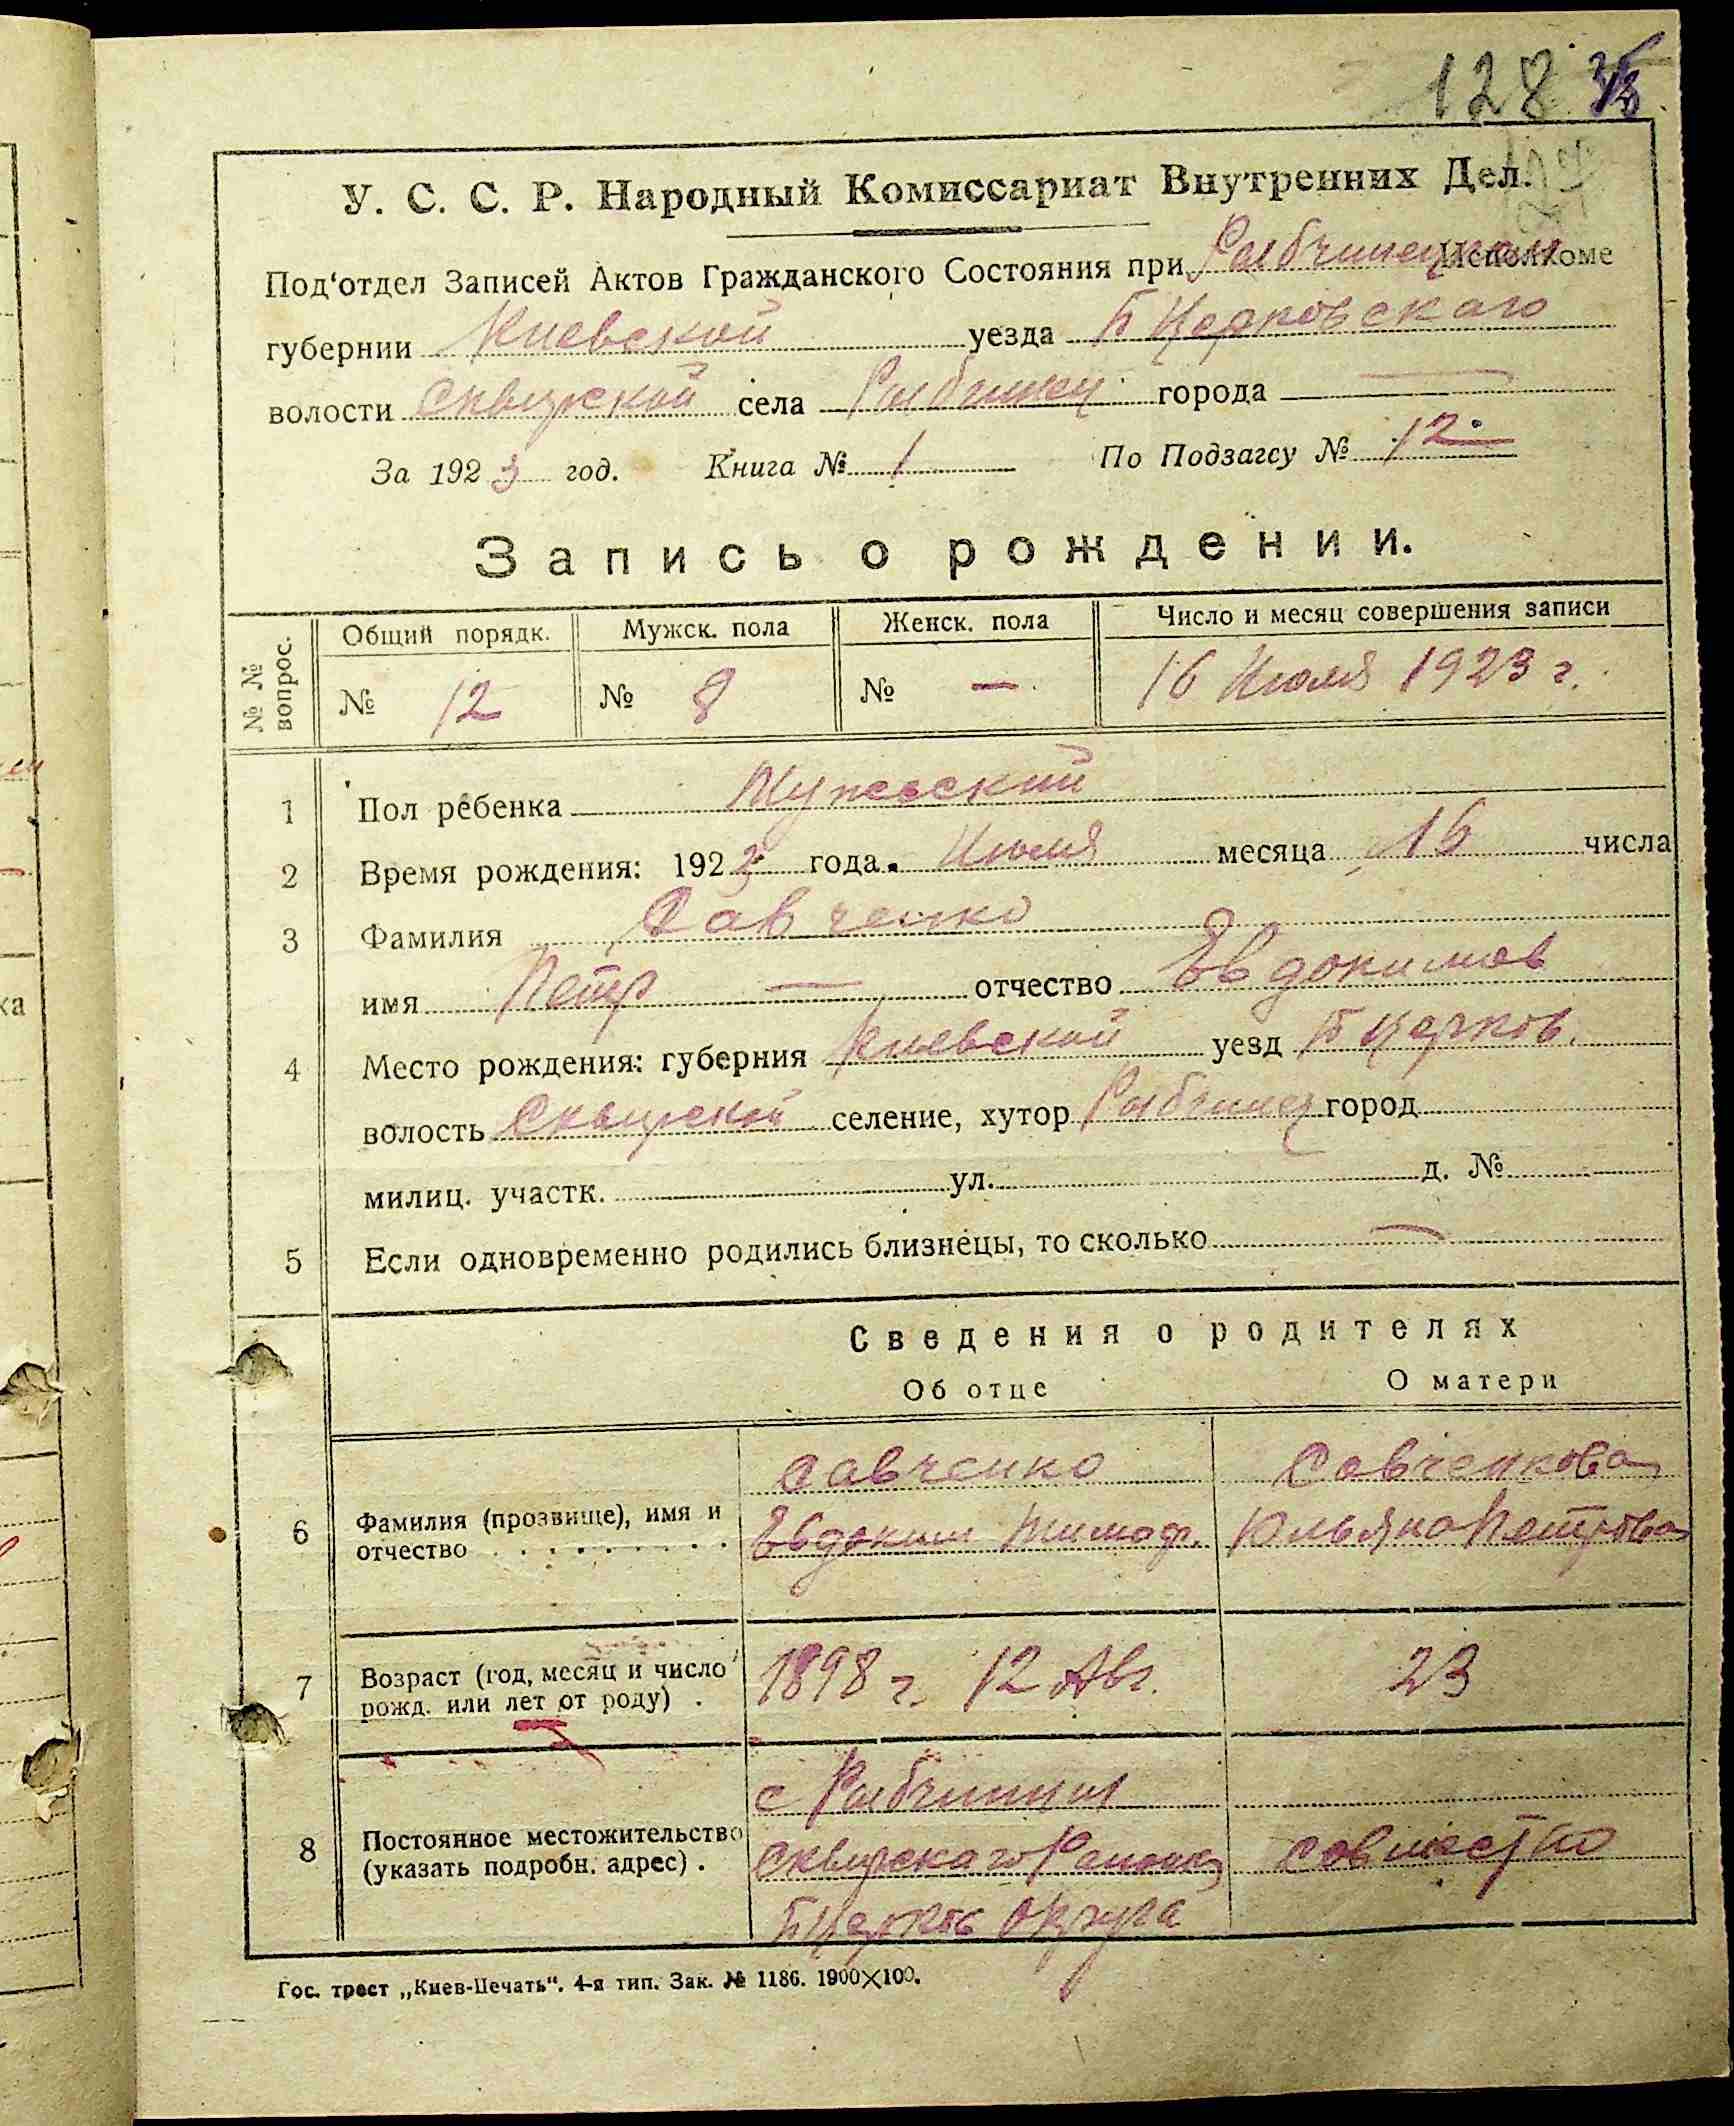 128
У. С. С. Р. Народный Комиссариат Внутренних Дел.
Под'отдел Записей Актов Гражданского Состояния при Рыбчинецком Исполкоме
губернии Киевской уезда Б Церковскаго
волости Сквирской села Рыбчинец города —
За 1923 год. Книга № 1 По Подзагсу № 12
Запись о рождении.
№ № вопрос. Общий порядк. Мужск. пола Женск. пола Число и месяц совершения записи
№ 12 № 8 № — 16 Июля 1923 г.
1 Пол ребенка Мужеский
2 Время рождения: 1923 года. Июля месяца 16 числа
3 Фамилия Савченко
имя Петр — отчество Евдокимов
4 Место рождения: губерния Киевской уезд Б Церков.
волость Сквирской селение, хутор Рыбчинец город
милиц. участк. ул. д. №
5 Если одновременно родились близнецы, то сколько —
Сведения о родителях
Об отце О матери
Савченко Савченкова
6 Фамилия (прозвище), имя и отчество Евдоким Тимоф. Юльяна Петрова
7 Возраст (год, месяц и число рожд. или лет от роду) . 1898 г. 12 Авг. 23
с Рыбчинцы
8 Постоянное местожительство (указать подробн. адрес) . Сквирскаго Района совместно
Б Церков Округа
Гос. трест „Киев-Печать“. 4-я тип. Зак. № 1186. 1900×100.